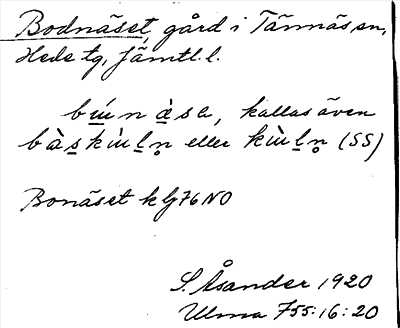 Bodnäset, gård i Tännäs sn,
Hede tg, Jämtl. l.
bu̲ú̲n ä̲̀sa, kallas även
bàs̲kùu̲l̲n̥ eller kùu̲l̲n̥ (SS)
Bonäset kbl 76 NO
S. Åsander 1920
Ulma 755:16:20